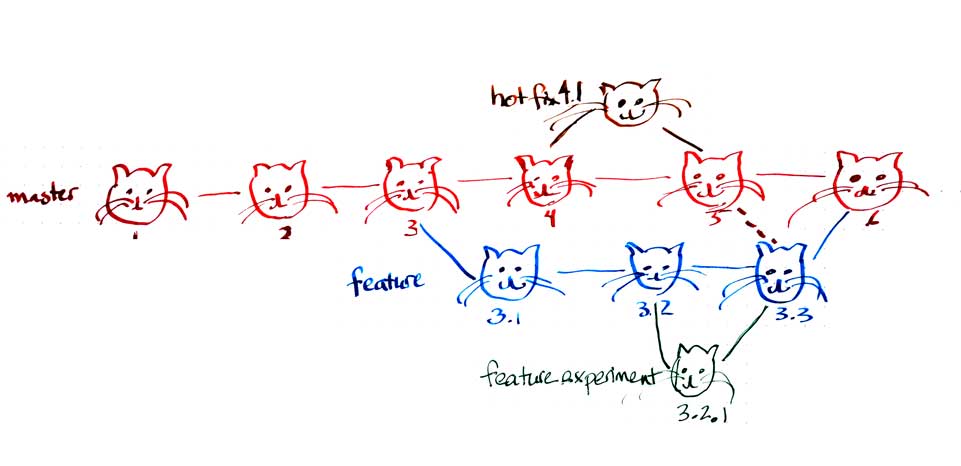 hot fix 4.1
master
1 2 3 4 5 6
feature
3.1 3.2 3.3
feature experiment
3.2.1